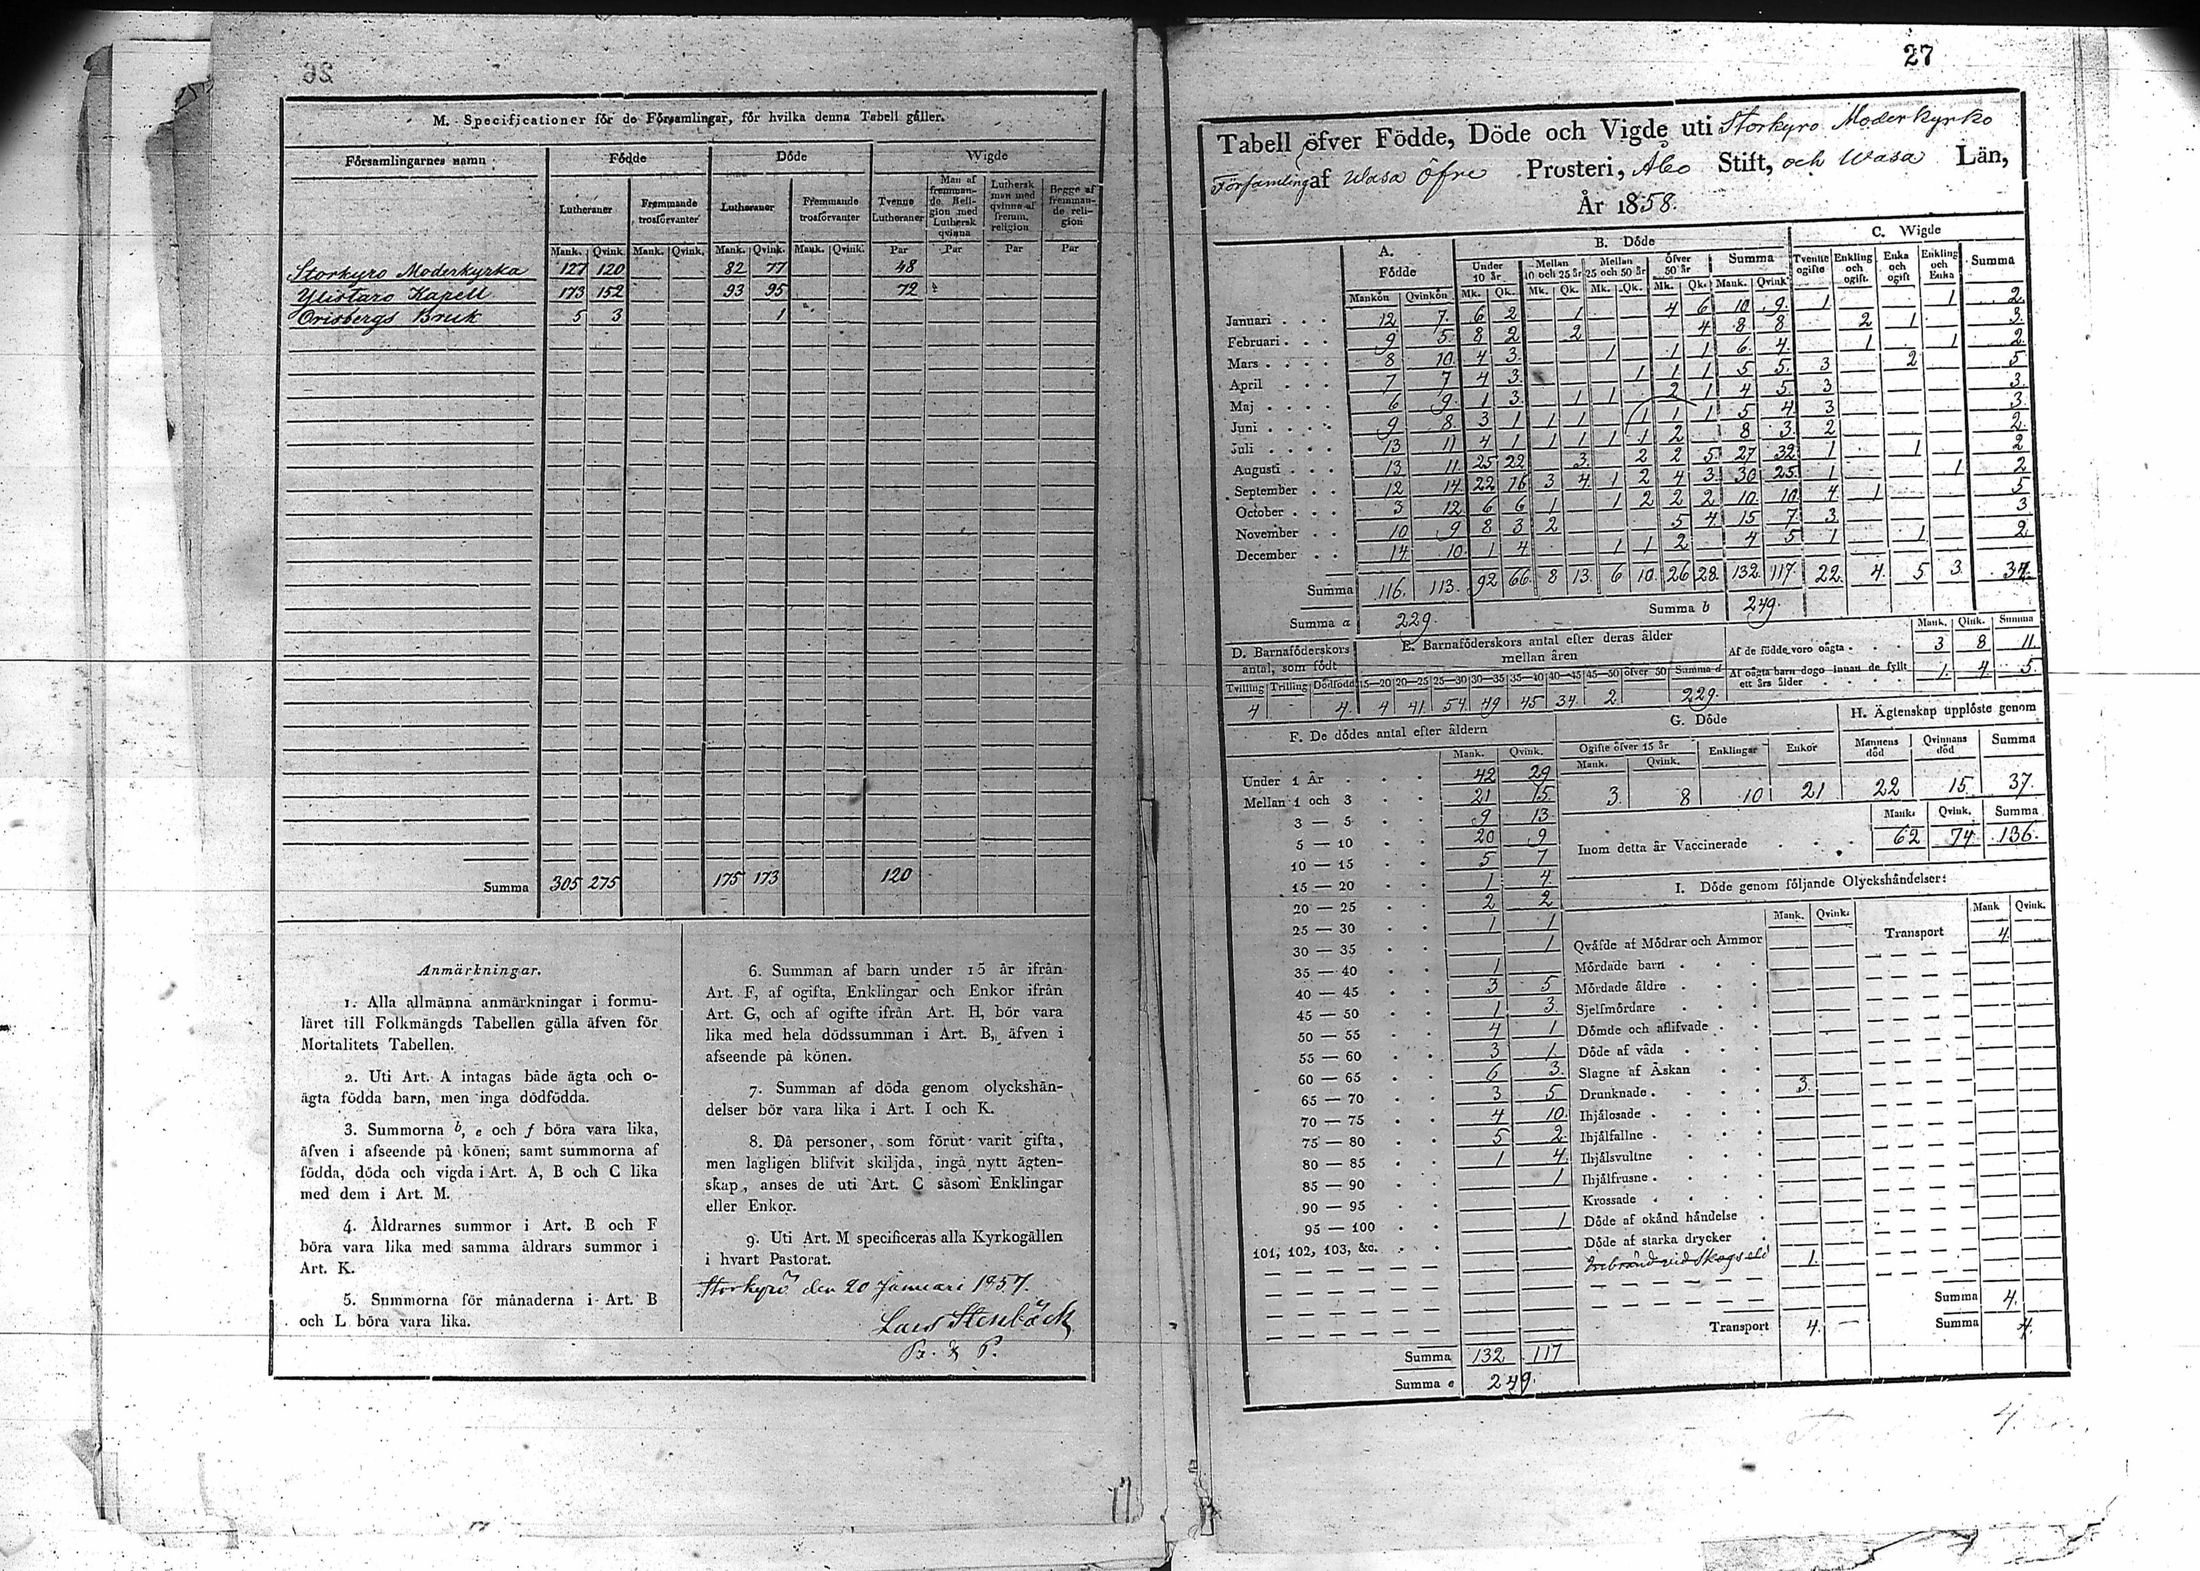 26
M. Specificationer för de Församlingar, för hvilka denna Tabell gäller.
Församlingarnes namn Födde Döde Wigde
Lutheraner Fremmande trosförvanter Lutheraner Fremmande trosförvanter Tvenne Lutheraner Man af fremmande Religion med Luthersk qvinna Luthersk man med qvinna af fremm. religion Begge af fremmande religion
Mank. Qvink. Mank. Qvink. Mank. Qvink. Mank. Qvink. Par Par Par Par
Storkyro Moderkyrka 127 120 82 77 48
Ylistaro Kapell 173 152 93 95 72
Orisbergs Bruk 5 3 1
Summa 305 275 175 173 120
Anmärkningar.
1. Alla allmänna anmärkningar i formu-
läret till Folkmängds Tabellen gälla äfven för
Mortalitets Tabellen.
2. Uti Art. A intagas både ägta och o-
ägta födda barn, men inga dödfödda.
3. Summorna b, e och f böra vara lika,
äfven i afseende på könen; samt summorna af
födda, döda och vigda i Art. A, B och C lika
med dem i Art. M.
4. Åldrarnes summor i Art. B och F
böra vara lika med samma åldrars summor i
Art. K.
5. Summorna för månaderna i Art. B
och L böra vara lika.
6. Summan af barn under 15 år ifrån
Art. F, af ogifta, Enklingar och Enkor ifrån
Art. G, och af ogifte ifrån Art. H, bör vara
lika med hela dödssumman i Art. B, äfven i
afseende på könen.
7. Summan af döda genom olyckshän-
delser bör vara lika i Art. I och K.
8. Då personer, som förut varit gifta,
men lagligen blifvit skiljda, ingå nytt ägten-
skap, anses de uti Art. C såsom Enklingar
eller Enkor.
9. Uti Art. M specificeras alla Kyrkogällen
i hvart Pastorat.
Storkyrö den 20 Januari 1857.
Lars Stenbäck
17
27
Tabell öfver Födde, Döde och Vigde uti Storkyro Moderkyrko
Församling af Wasa Öfre Prosteri, Åbo Stift, och Wasa Län,
År 1858.
A. Födde B. Döde C. Wigde
Under 10 år Mellan 10 och 25 år Mellan 25 och 50 år Öfver 50 år Summa Tvenne ogifte Enkling och ogift. Enka och ogift Enkling och Enka Summa
Mankön Qvinkön Mk. Qk. Mk. Qk. Mk. Qk. Mk. Qk. Mank. Qvink
Januari 12 7 6 2 1 4 6 10 9 1 1 2
Februari 9 5 8 2 2 4 8 8 2 1 3
Mars 8 10 4 3 1 1 1 6 4 1 1 2
April 7 7 4 3 1 1 1 5 5 3 2 5
Maj 6 9 1 3 1 1 2 1 4 5 3 3
Juni 9 8 3 1 1 1 1 1 1 5 4 3 3
Juli 13 11 4 1 1 1 1 1 2 8 3 2 2
Augusti 13 11 25 22 3 2 2 5 27 32 1 1 2
September 12 14 22 16 3 4 1 2 4 3 30 25 1 1 2
October 3 12 6 6 1 1 2 2 2 10 10 4 1 5
November 10 9 8 3 2 5 4 15 7 3 3
December 14 10 1 4 1 1 2 4 5 1 1 2
Summa 116. 113. 92 66 8 13 6 10 26 28 132 117 22 4 5 3 34
Summa a 229. Summa b 249.
D. Barnaföderskors antal, som födt
Tvilling Trilling Dödfödd
4 4
E. Barnaföderskors antal efter deras ålder mellan åren
15—20 20—25 25—30 30—35 35—40 40—45 45—50 öfver 50 Summa d
4 41 54 49 45 34 2 229
Mank. Qink. Summa
Af de födde voro oägta 3 8 11
Af oägta barn dogo innan de fyllt ett års ålder 1 4 5
F. De dödes antal efter åldern
Mank. Qvink.
Under 1 År 42 29
Mellan 1 och 3 21 15
3 — 5 9 13
5 — 10 20 9
10 — 15 5 7
15 — 20 1 4
20 — 25 2 2
25 — 30 1 1
30 — 35 1
35 — 40 1
40 — 45 3 5
45 — 50 1 3
50 — 55 4 1
55 — 60 3 1
60 — 65 6 3
65 — 70 3 5
70 — 75 4 10
75 — 80 5 2
80 — 85 1 4
85 — 90 1
90 — 95
95 — 100 1
101, 102, 103, &c.
Summa 132 117
Summa e 249.
G. Döde
Ogifte öfver 15 år Enklingar Enkor
Mank. Qvink.
3 8 10 21
H. Ägtenskap upplöste genom
Mannens död Qvinnans död Summa
22 15 37
Mank. Qvink. Summa
Inom detta år Vaccinerade 62 74 136
I. Döde genom följande Olyckshändelser:
Mank. Qvink. Mank Qvink.
Qväfde af Mödrar och Ammor Transport 4
Mördade barn
Mördade äldre
Sjelfmördare
Dömde och aflifvade
Döde af våda
Slagne af Åskan
Drunknade 3
Ihjälosade
Ihjälfallne
Ihjälsvultne
Ihjälfrusne
Krossade
Döde af okänd händelse
Döde af starka drycker
Innebränd vid Skogseld 1
Summa 4
Transport 4 Summa 4